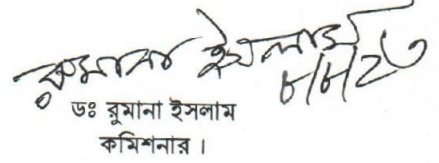 রুমানা ইসলাম
৮/৮/২৩
ডঃ রুমানা ইসলাম
কমিশনার ।